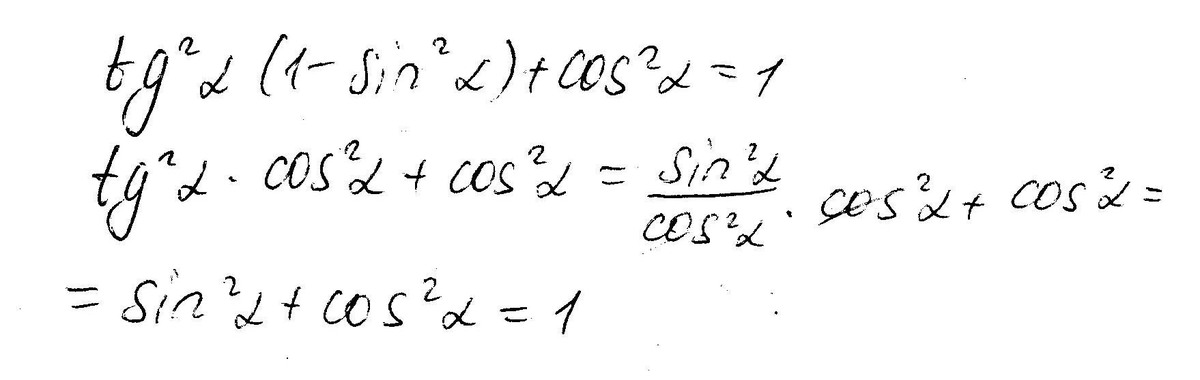 tg²α (1 - sin²α) + cos²α = 1
tg²α · cos²α + cos²α = sin²α/cos²α · cos²α + cos²α =
= sin²α + cos²α = 1